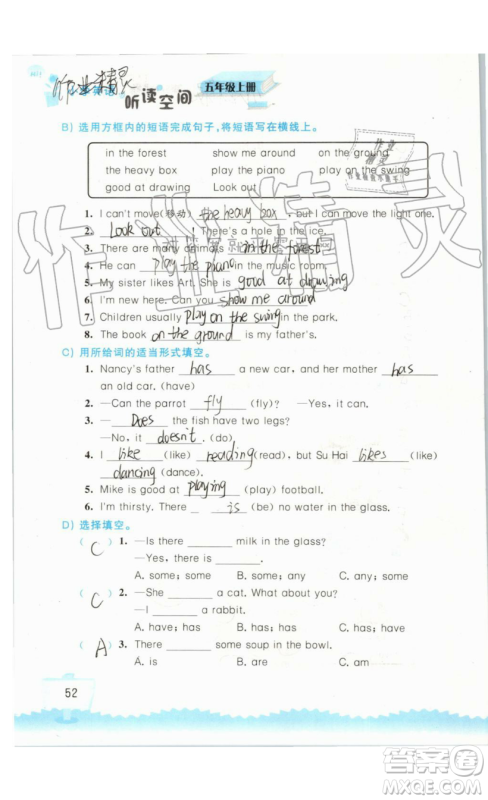 作业精灵
听读空间
五年级上册
B) 选用方框内的短语完成句子,将短语写在横线上。
in the forest show me around on the ground
the heavy box play the piano play on the swing
good at drawing Look out
1. I can't move(移动) the heavy box, but I can move the light one.
2. Look out! There's a hole in the ice.
3. There are many animals in the forest.
4. He can play the piano in the music room.
5. My sister likes Art. She is good at drawing.
6. I'm new here. Can you show me around?
7. Children usually play on the swing in the park.
8. The book on the ground is my father's.
C) 用所给词的适当形式填空。
1. Nancy's father has a new car, and her mother has
an old car. (have)
2. —Can the parrot fly (fly)? —Yes, it can.
3. — Does the fish have two legs?
—No, it doesn't. (do)
4. I like (like) reading (read), but Su Hai likes (like)
dancing (dance).
5. Mike is good at playing (play) football.
6. I'm thirsty. There is (be) no water in the glass.
D) 选择填空。
( C ) 1. —Is there ______ milk in the glass?
—Yes, there is ______.
A. some; some B. some; any C. any; some
( C ) 2. —She ______ a cat. What about you?
—I ______ a rabbit.
A. have; has B. has; has C. has; have
( A ) 3. There ______ some soup in the bowl.
A. is B. are C. am
52
作业精灵
答案圈
MXQE.COM